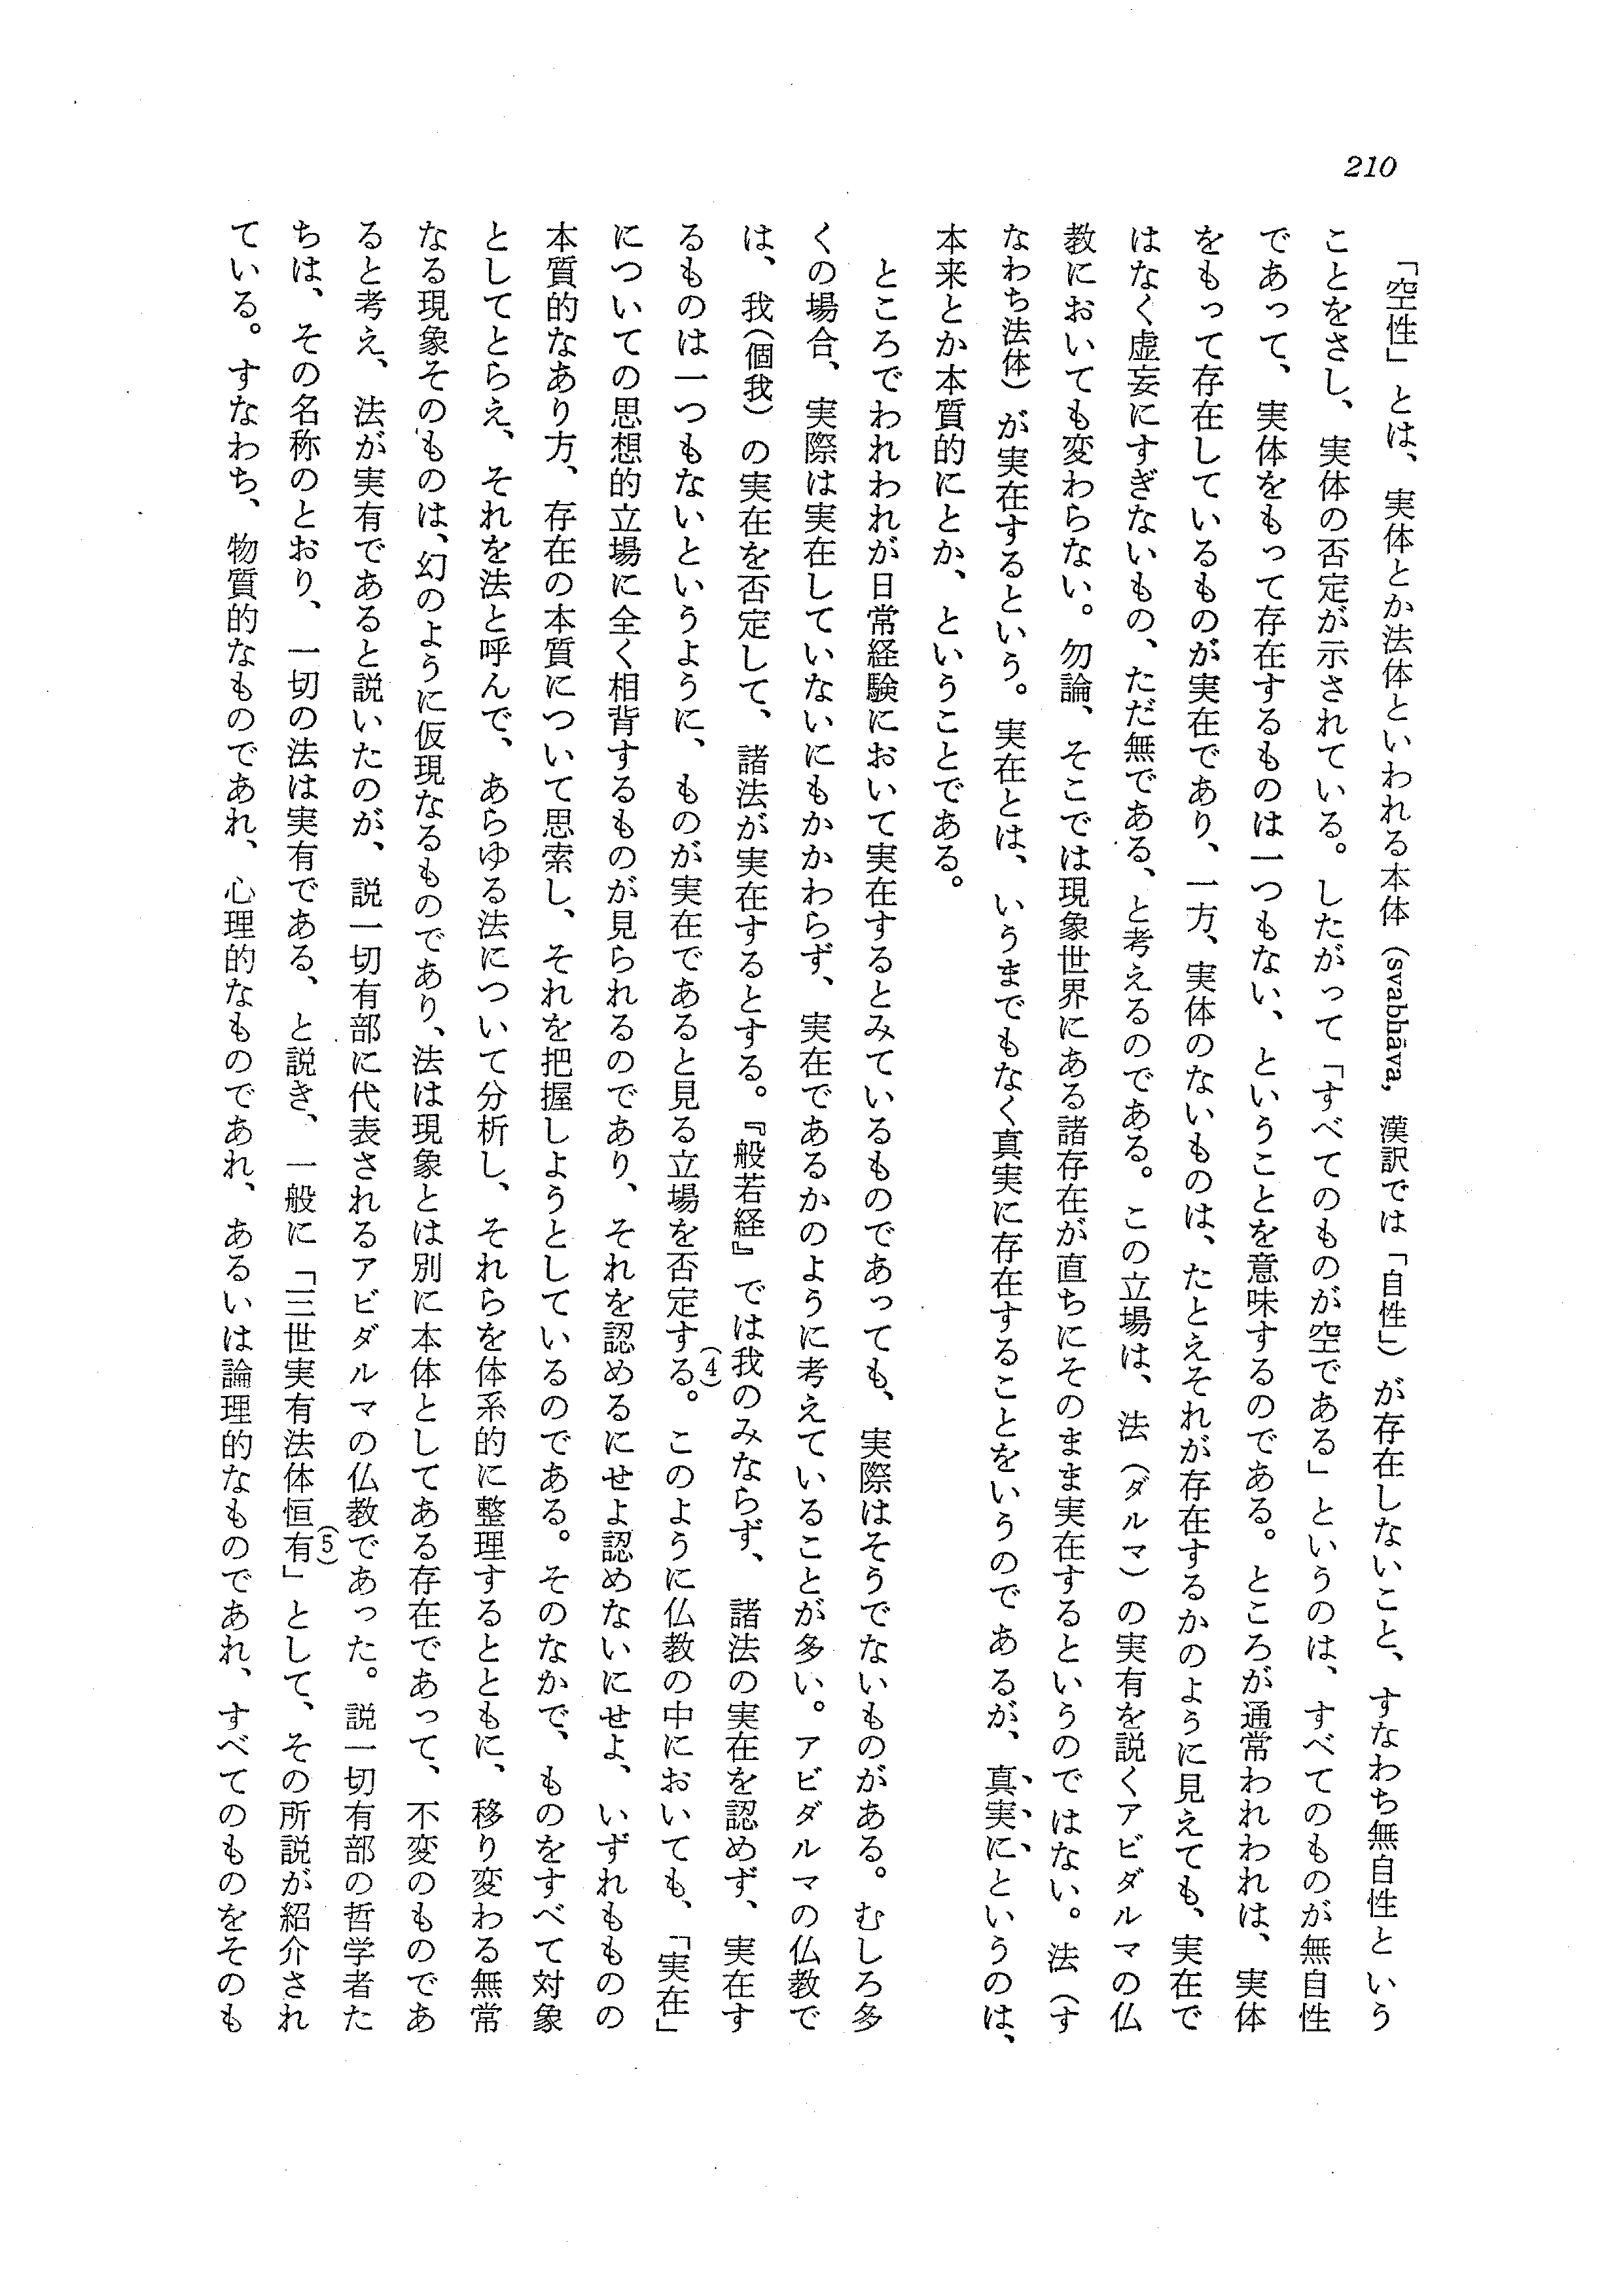 210
「空性」とは、実体とか法体といわれる本体（svabhāva, 漢訳では「自性」）が存在しないこと、すなわち無自性という
ことをさし、実体の否定が示されている。したがって「すべてのものが空である」というのは、すべてのものが無自性
であって、実体をもって存在するものは一つもない、ということを意味するのである。ところが通常われわれは、実体
をもって存在しているものが実在であり、一方、実体のないものは、たとえそれが存在するかのように見えても、実在で
はなく虚妄にすぎないもの、ただ無である、と考えるのである。この立場は、法（ダルマ）の実有を説くアビダルマの仏
教においても変わらない。勿論、そこでは現象世界にある諸存在が直ちにそのまま実在するというのではない。法（す
なわち法体）が実在するという。実在とは、いうまでもなく真実に存在することをいうのであるが、真実にというのは、
本来とか本質的にとか、ということである。
ところでわれわれが日常経験において実在するとみているものであっても、実際はそうでないものがある。むしろ多
くの場合、実際は実在していないにもかかわらず、実在であるかのように考えていることが多い。アビダルマの仏教で
は、我（個我）の実在を否定して、諸法が実在するとする。『般若経』では我のみならず、諸法の実在を認めず、実在す
るものは一つもないというように、ものが実在であると見る立場を否定する（4）。このように仏教の中においても、「実在」
についての思想的立場に全く相背するものが見られるのであり、それを認めるにせよ認めないにせよ、いずれもものの
本質的なあり方、存在の本質について思索し、それを把握しようとしているのである。そのなかで、ものをすべて対象
としてとらえ、それを法と呼んで、あらゆる法について分析し、それらを体系的に整理するとともに、移り変わる無常
なる現象そのものは、幻のように仮現なるものであり、法は現象とは別に本体としてある存在であって、不変のものであ
ると考え、法が実有であると説いたのが、説一切有部に代表されるアビダルマの仏教であった。説一切有部の哲学者た
ちは、その名称のとおり、一切の法は実有である、と説き、一般に「三世実有法体恒有（5）」として、その所説が紹介され
ている。すなわち、物質的なものであれ、心理的なものであれ、あるいは論理的なものであれ、すべてのものをそのも